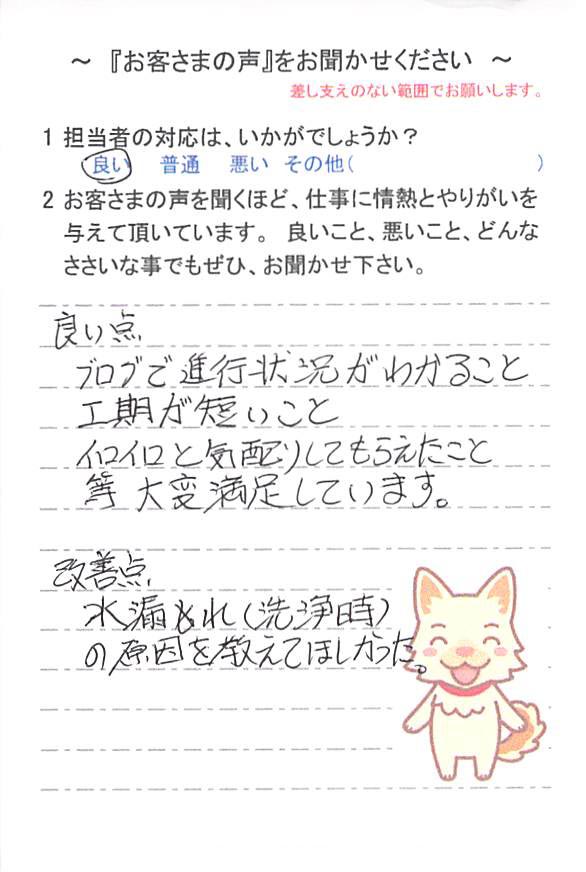 ～ 『お客さまの声』をお聞かせください ～
差し支えのない範囲でお願いします。
1 担当者の対応は、いかがでしょうか？
良い 普通 悪い その他( )
2 お客さまの声を聞くほど、仕事に情熱とやりがいを
与えて頂いています。 良いこと、悪いこと、どんな
ささいな事でもぜひ、お聞かせ下さい。
良い点
ブログで進行状況がわかること
工期が短いこと
イロイロと気配りしてもらえたこと
等 大変満足しています。
改善点
水漏もれ(洗浄時)
の原因を教えてほしかった。